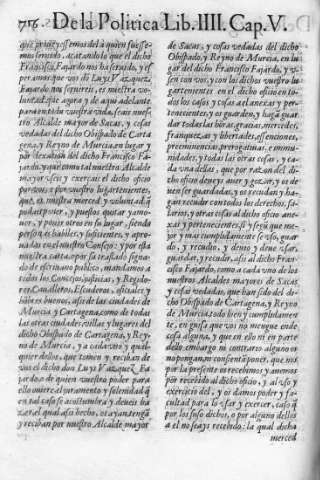 716. De la Politica Lib. IIII. Cap. V.
que proueyessemos della quien fuesse-
mos seruido, acatando lo que el dicho
Francisco Fajardo, nos ha seruido, y es-
peramos que vos do Luys Vazquez
Fajardo nos seruireis, es nuestra vo-
luntad que agora y de aqui adelante
para en toda vuestra vida, seais nues-
tro Alcalde mayor de Sacas, y cosas
vedadas del dicho Obispado de Carta
gena, y Reyno de Murcia, en lugar y
por dexacion del dicho Francisco Fa-
jardo: y que como tal nuestro Alcalde
mayor vseys y exerçais el dicho oficio
por vos, o por vuestro lugarteniente,
que es nuestra merced y voluntad q
podais poner, y pueslos quitar y amo-
uer, y poner otros en su lugar, siendo
personas habiles, y suficientes, y apro
uadas en el nuestro Consejo: y por esta
nuestra carta, o por su traslado signa-
do de escriuano publico, mandamos a
todos los Concejos, justicias, y Regido-
res, Caualleros, Escuderos, oficiales, y
hombres buenos, assi de las ciudades de
Murcia y Cartagena, como de todas
las otras ciudades, villas, y lugares del
dicho Obispado de Cartagena, y Rey-
no de Murcia, y a cada vno y qual-
quier dellos, que tomen y reciban, de
vos el dicho don Luys Vazquez Fa-
jardo, o de quien vuestro poder para
ello ouiere el juramento y solenidad q
en tal caso se acostumbra, y deueis ha-
zer, el qual assi hecho, os ayan, tengan
y reciban por nuestro Alcalde mayor
de Sacas, y cosas vedadas del dicho
Obispado, y Reyno de Murcia, en lu-
gar del dicho Francisco Fajardo, y v-
sen con vos, y con los dichos vuestro lu-
gartenientes en el dicho oficio en to-
dos los casos y cosas a el anexas y per-
tenecientes, y os guarden, y hagã guar
dar todas las honras, gracias, mercedes,
franquezas, y libertades, essenciones,
preeminencias, prerogatiuas, e immu-
nidades, y todas las otras cosas, y ca-
da vna dellas, que por razon del di-
cho oficio deueys auer y gozar, y os de
uen ser guardadas, y os recudan y ha-
gan recudir con todos los derechos, sa-
larios, y otras cosas al dicho oficio ane-
xas y pertenecientes, si y segũ que me-
jor y mas cumplidamente se vsò, guar-
dò, y recudio, y deuio y deue vsar,
guardar, y recudir, assi al dicho Fran-
cisco Fajardo, como a cada vno de los
nuestros Alcaldes mayores de Sacas
y cosas vedadas, que han sido del di-
cho Obispado de Cartagena, y Reyno
de Murcia, todo bien y cumplidamen-
te, en guisa que vos no mengue ende
cosa alguna, y que en ello ni en parte
dello embargo ni contrario alguno os
no pongan, ni consientã poner, que nos
por la presente os recebimos y auemos
por recebido al dicho oficio, y al vso y
exercicio del, y os damos poder y fa-
cultad para lo vsar y exercer, caso q̃
por los suso dichos, o por alguno dellos
a el no seays recebido: la qual dicha
merced